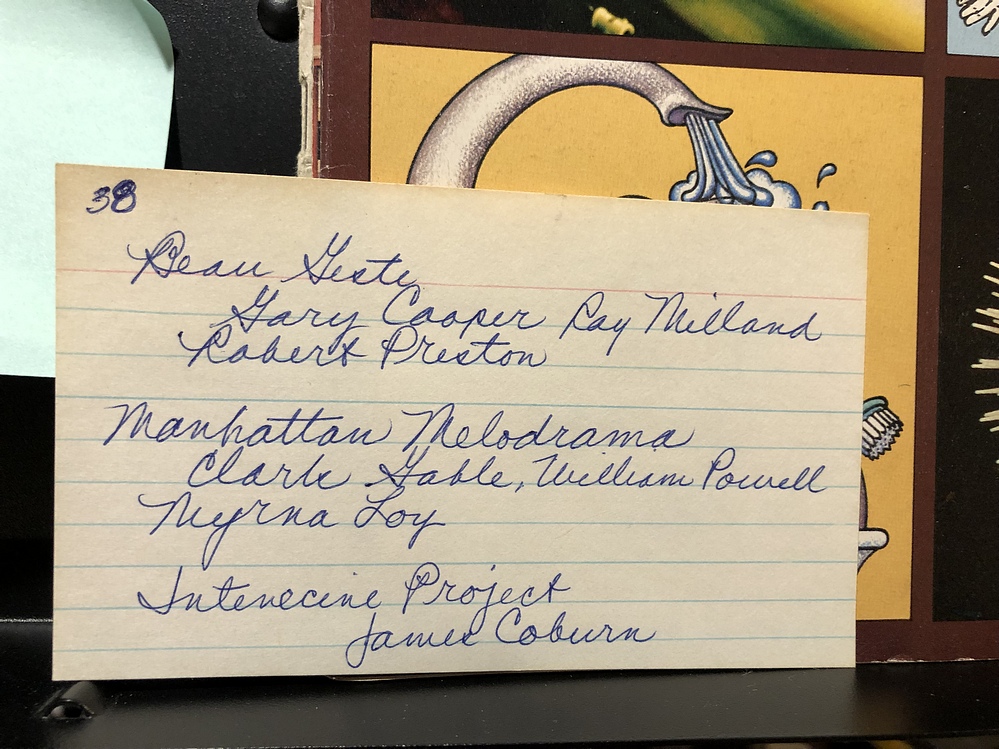 38
Beau Geste
Gary Cooper Ray Milland
Robert Preston
Manhattan Melodrama
Clark Gable, William Powell
Myrna Loy
Intenecine Project
James Coburn